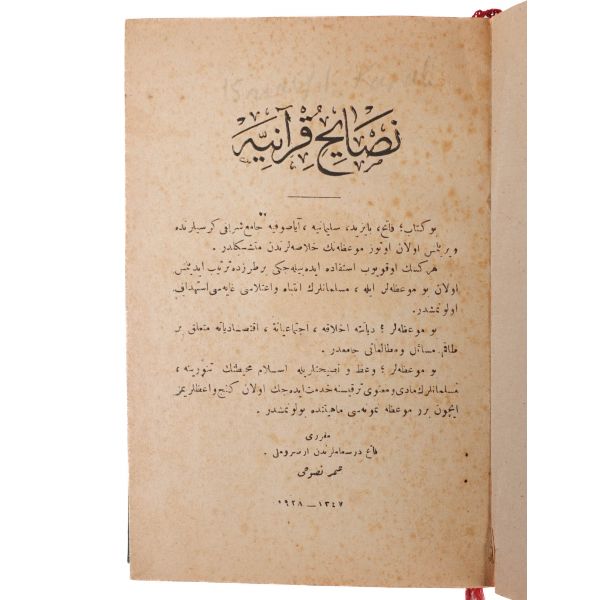 نصایح قرآنیه
بو کتاب؛ فاتح، بایزید، سلیمانیه، آیاصوفیه جامع شریفی کرسیلرنده
ویریلمش اولان اوتوز موعظه‌نك خلاصه‌لرندن متشکلدر.
هرکسك اوقویوب استفاده ایده‌بیله‌جکی برطرزده ترتیب ایدیلمش
اولان بو موعظه‌لر ایله، مسلمانلرك انتباه واعتلاسی غایه‌سی استهداف
اولونمشدر.
بو موعظه‌لر؛ دیانته، اخلاقه، اجتماعیاته، اقتصادیاته متعلق بر
طاقم مسائل ومطالعاتی جامعدر.
بو موعظه‌لر؛ وعظ و نصیحتلریله اسلام محیطنك تنویرینه،
مسلمانلرك مادی ومعنوی ترقیسنه خدمت ایده‌جك اولان کنج واعظلریمز
ایچون برر موعظه نمونه‌سی ماهیتنده بولونمشدر.
مقرری
فاتح درسعاملرندن ارضروملی
عمر نصوحی
١٣٤٧ — ١٩٢٨